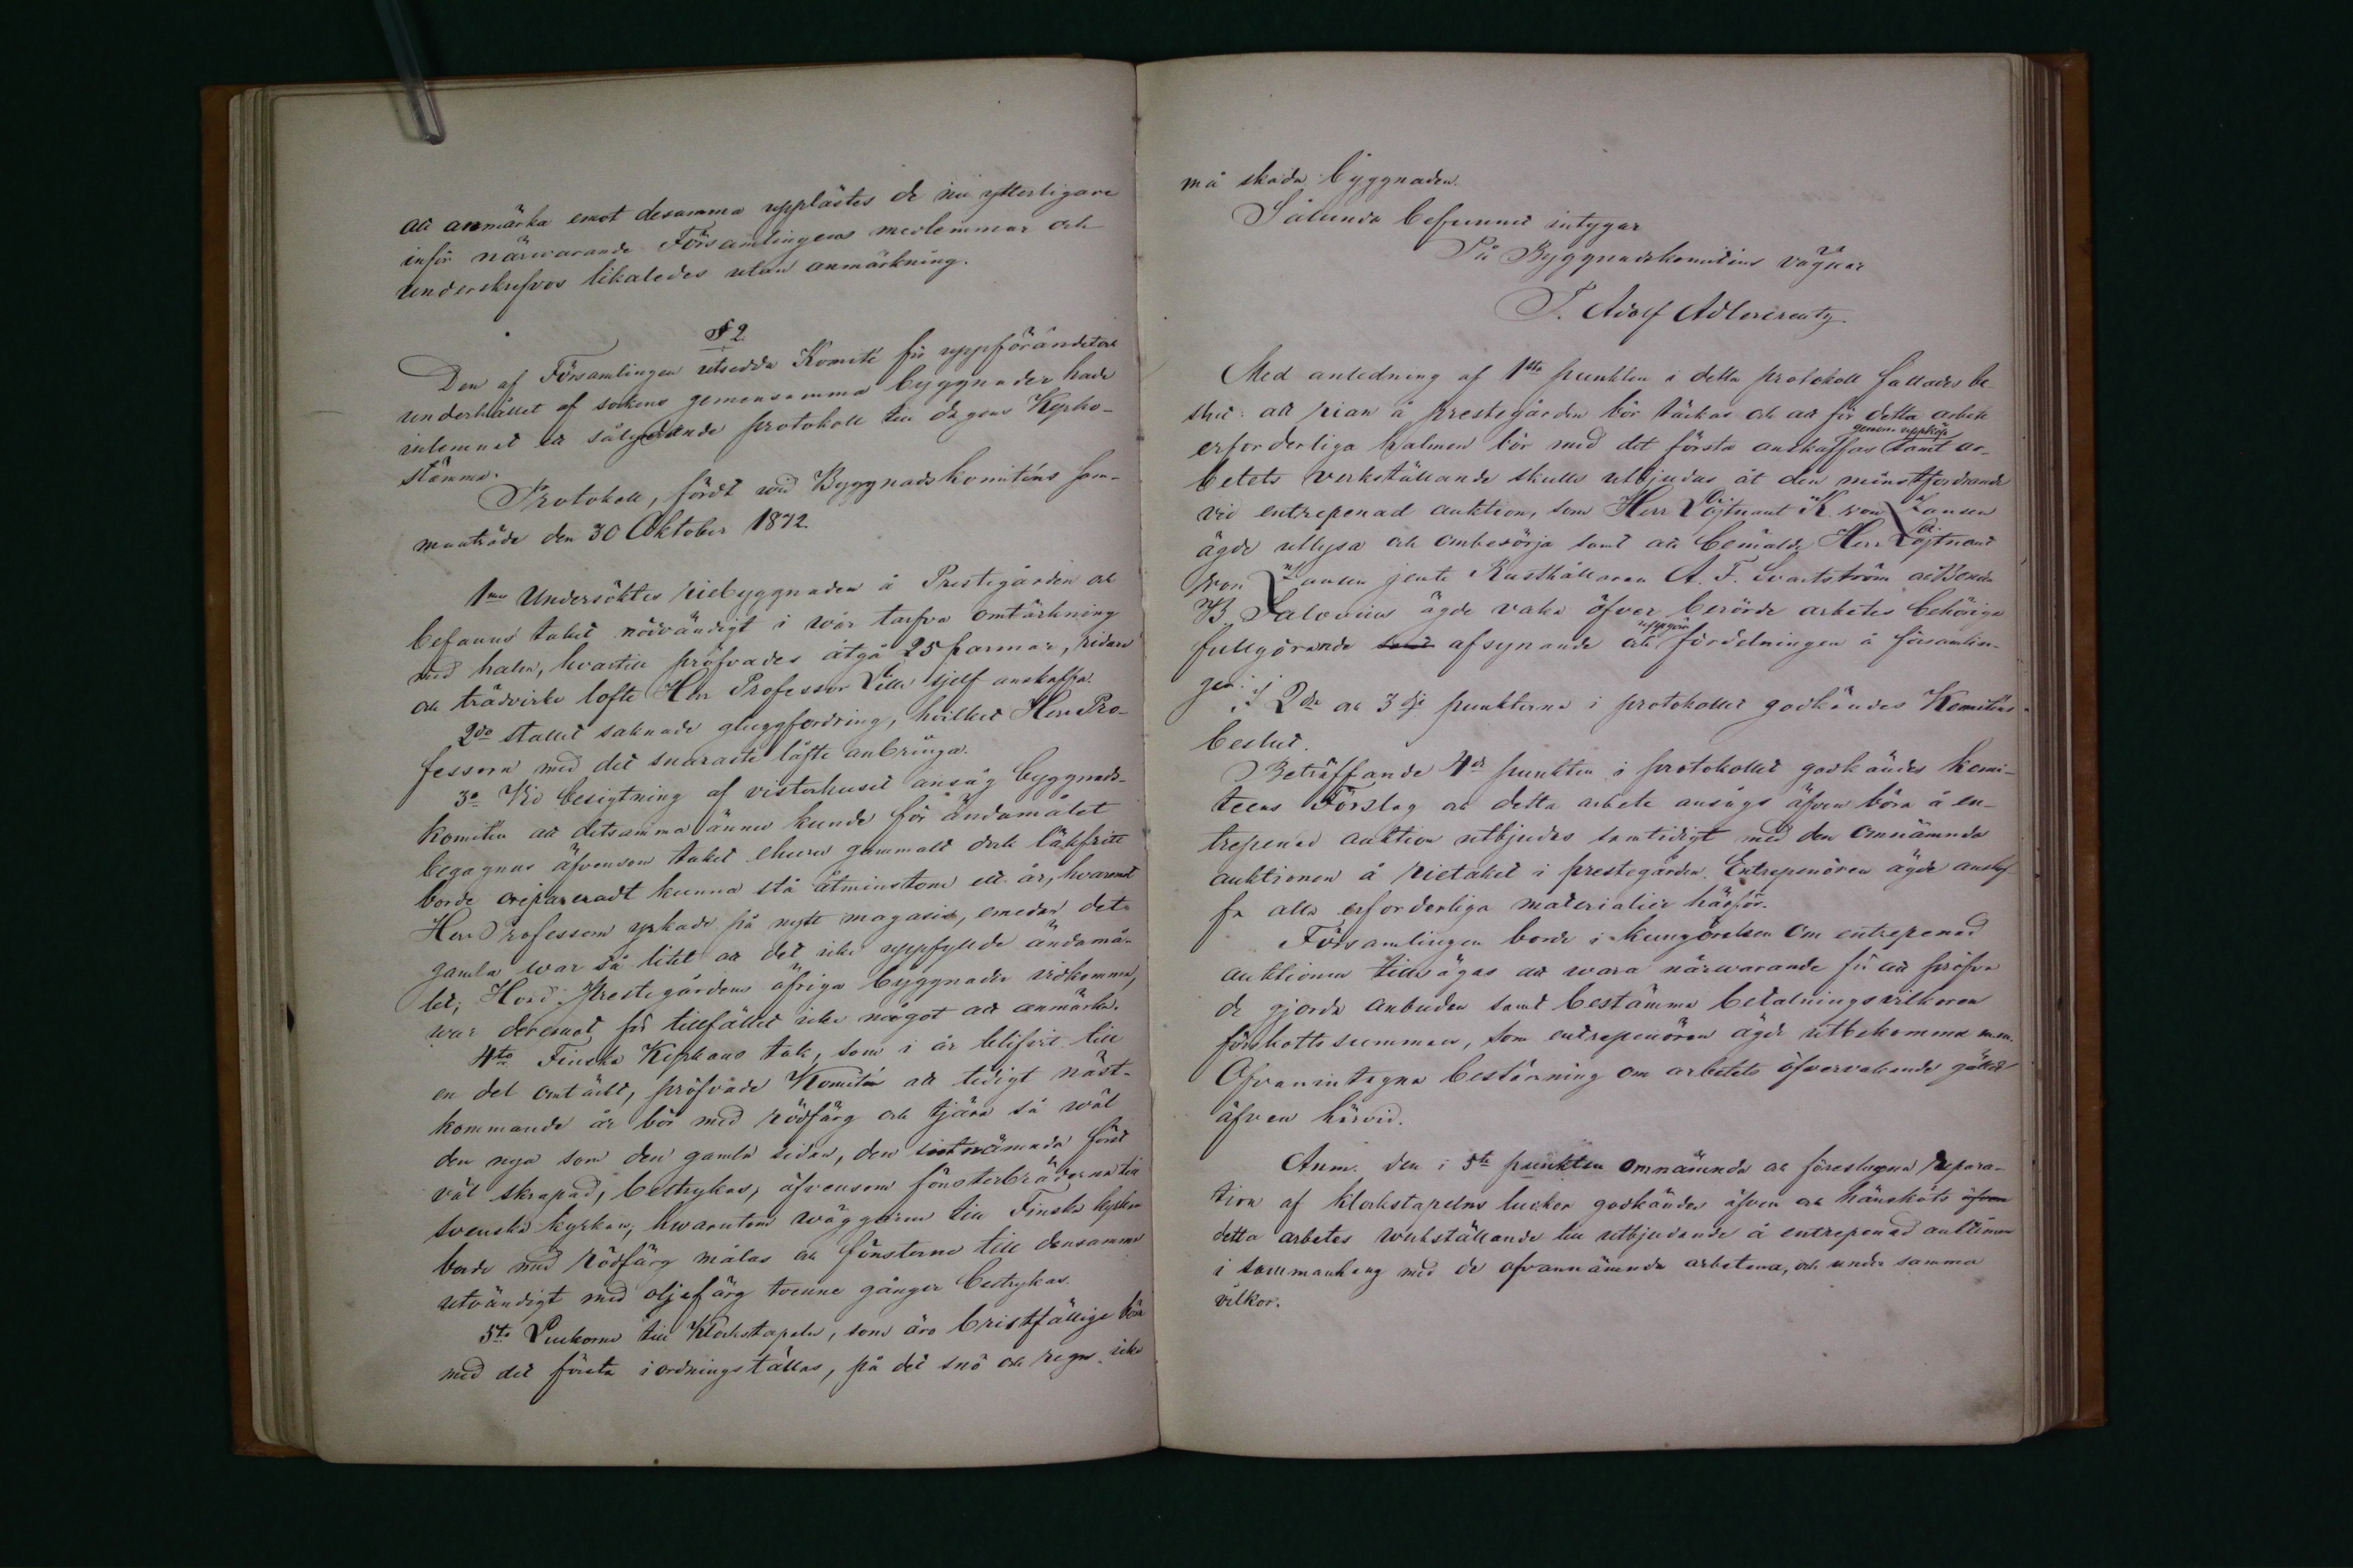 att anmärka emot desamma upplästes de nu ytterligare
inför närwarande Församlingens medlemmar och
underskrefvos likaledes utan anmärkning.
§ 2.
Den af Församlingen utsedda Komité för uppförandet och
underhållet af sockens gemensamma byggnader hade
inlemnat ett sålydande protokoll till dagens Kyrko-
stämma.
Protokoll, fördt wid Byggnadskomiténs sam-
manträde den 30 Oktober 1872.
1mo Undersöktes riebyggnaden å Prestegården och
befanns taket nödvändigt i wår tarfva omtäckning
med halm, hvartill pröfvades åtgå 25 parmar, vidare
och trädvirke lofte Herr Professor Lille sjelf anskaffa.
2do stallet saknade gluggfordring, hvilket Herr Pro-
fessorn med det snaraste låfte anbringa.
3o Vid besigtning af visterhuset ansåg byggnads-
komitén att detsamma ännu kunde för ändamålet
begagnas äfvensom taket ehuru gammalt dock läkfritt
borde orepareradt kunna stå åtminstone ett år, hvaremot
Herr Professorn yrkade på nytt magasin, emedan det
gamla war så litet att det icke uppfyllde ändamå-
let; Hvad Prestegårdens öfriga byggnader vidkomma,
war deremot för tillfället icke något att anmärka.
4to Finska Kyrkans tak, som i år blifvit till
en del omtäckt, pröfvade Komitén att tidigt näst-
kommande år bör med rödfärg och tjära så wäl
den nya som den gamla sidan, den sistnämnda först
väl skrapad, bestrykas, äfvensom fönsterbräderna till
svenska kyrkan, hwarutom wäggarne till Finska kyrkan
borde med rödfärg målas och fönsterna till densamma
utvändigt med oljefärg tvenne gånger bestrykas.
5to Luckorna till Klockstapeln, som äro bristfällige bör
med det första i ordningställas, på det snö och regn icke
må skada byggnaden.
Sålunda befunnit intygar
På Byggnadskomiténs vägnar
T. Adolf Adlercreutz.
Med anledning af 1sta punkten i detta protokoll fattades be-
slut: att rian å prestegården bör täckas och att för detta arbete
erforderliga halmen bör med det första anskaffas genom uppköp samt ar-
betets verkställande skulle utbjudas åt den minstfordrande
vid entrepenad auktion, som Herr Löjtnant K. von Zansen
ägde utlysa och ombesörja samt att bemälde Herr Löjtnant
von Zansen jemte Rusthållaren A. F. Svartström och
B. Salovius ägde vaka öfver berörde arbetes behöriga
fullgörande samt afsynande och uppgöra fördelningen å församlin-
gen.
I 2dra och 3dje punkterna i protokollet godkändes Komiténs
beslut.
Beträffande 4de punkten i protokollet godkändes komi-
teens Förslag och detta arbete ansågs äfven böra å en-
trepenad auktion utbjudas samtidigt med den omnämnda
auktionen å rietaket i prestegården. Entrepenören ägde anskaf-
fa alla erforderliga materialier härför.
Församlingen borde i kungörelsen om entrepenad
auktionen tillsägas att wara närwarande för att pröfva
de gjorda anbuden samt bestämma betalningsvilkoren
förskotts summan, som entrepenören ägde utbekomma m.m.
Ofvanintagna bestämning om arbetets öfvervakande gäller
äfven härvid.
Anm. den i 5te punkten omnämnda och föreslagna repara-
tion af klockstapelns luckor godkändes äfven och hänsköts äfven
detta arbetes werkställande till utbjudande å entrepenad auktionen
i sammanhang med de ofvannämnda arbetena, och under samma
vilkor.